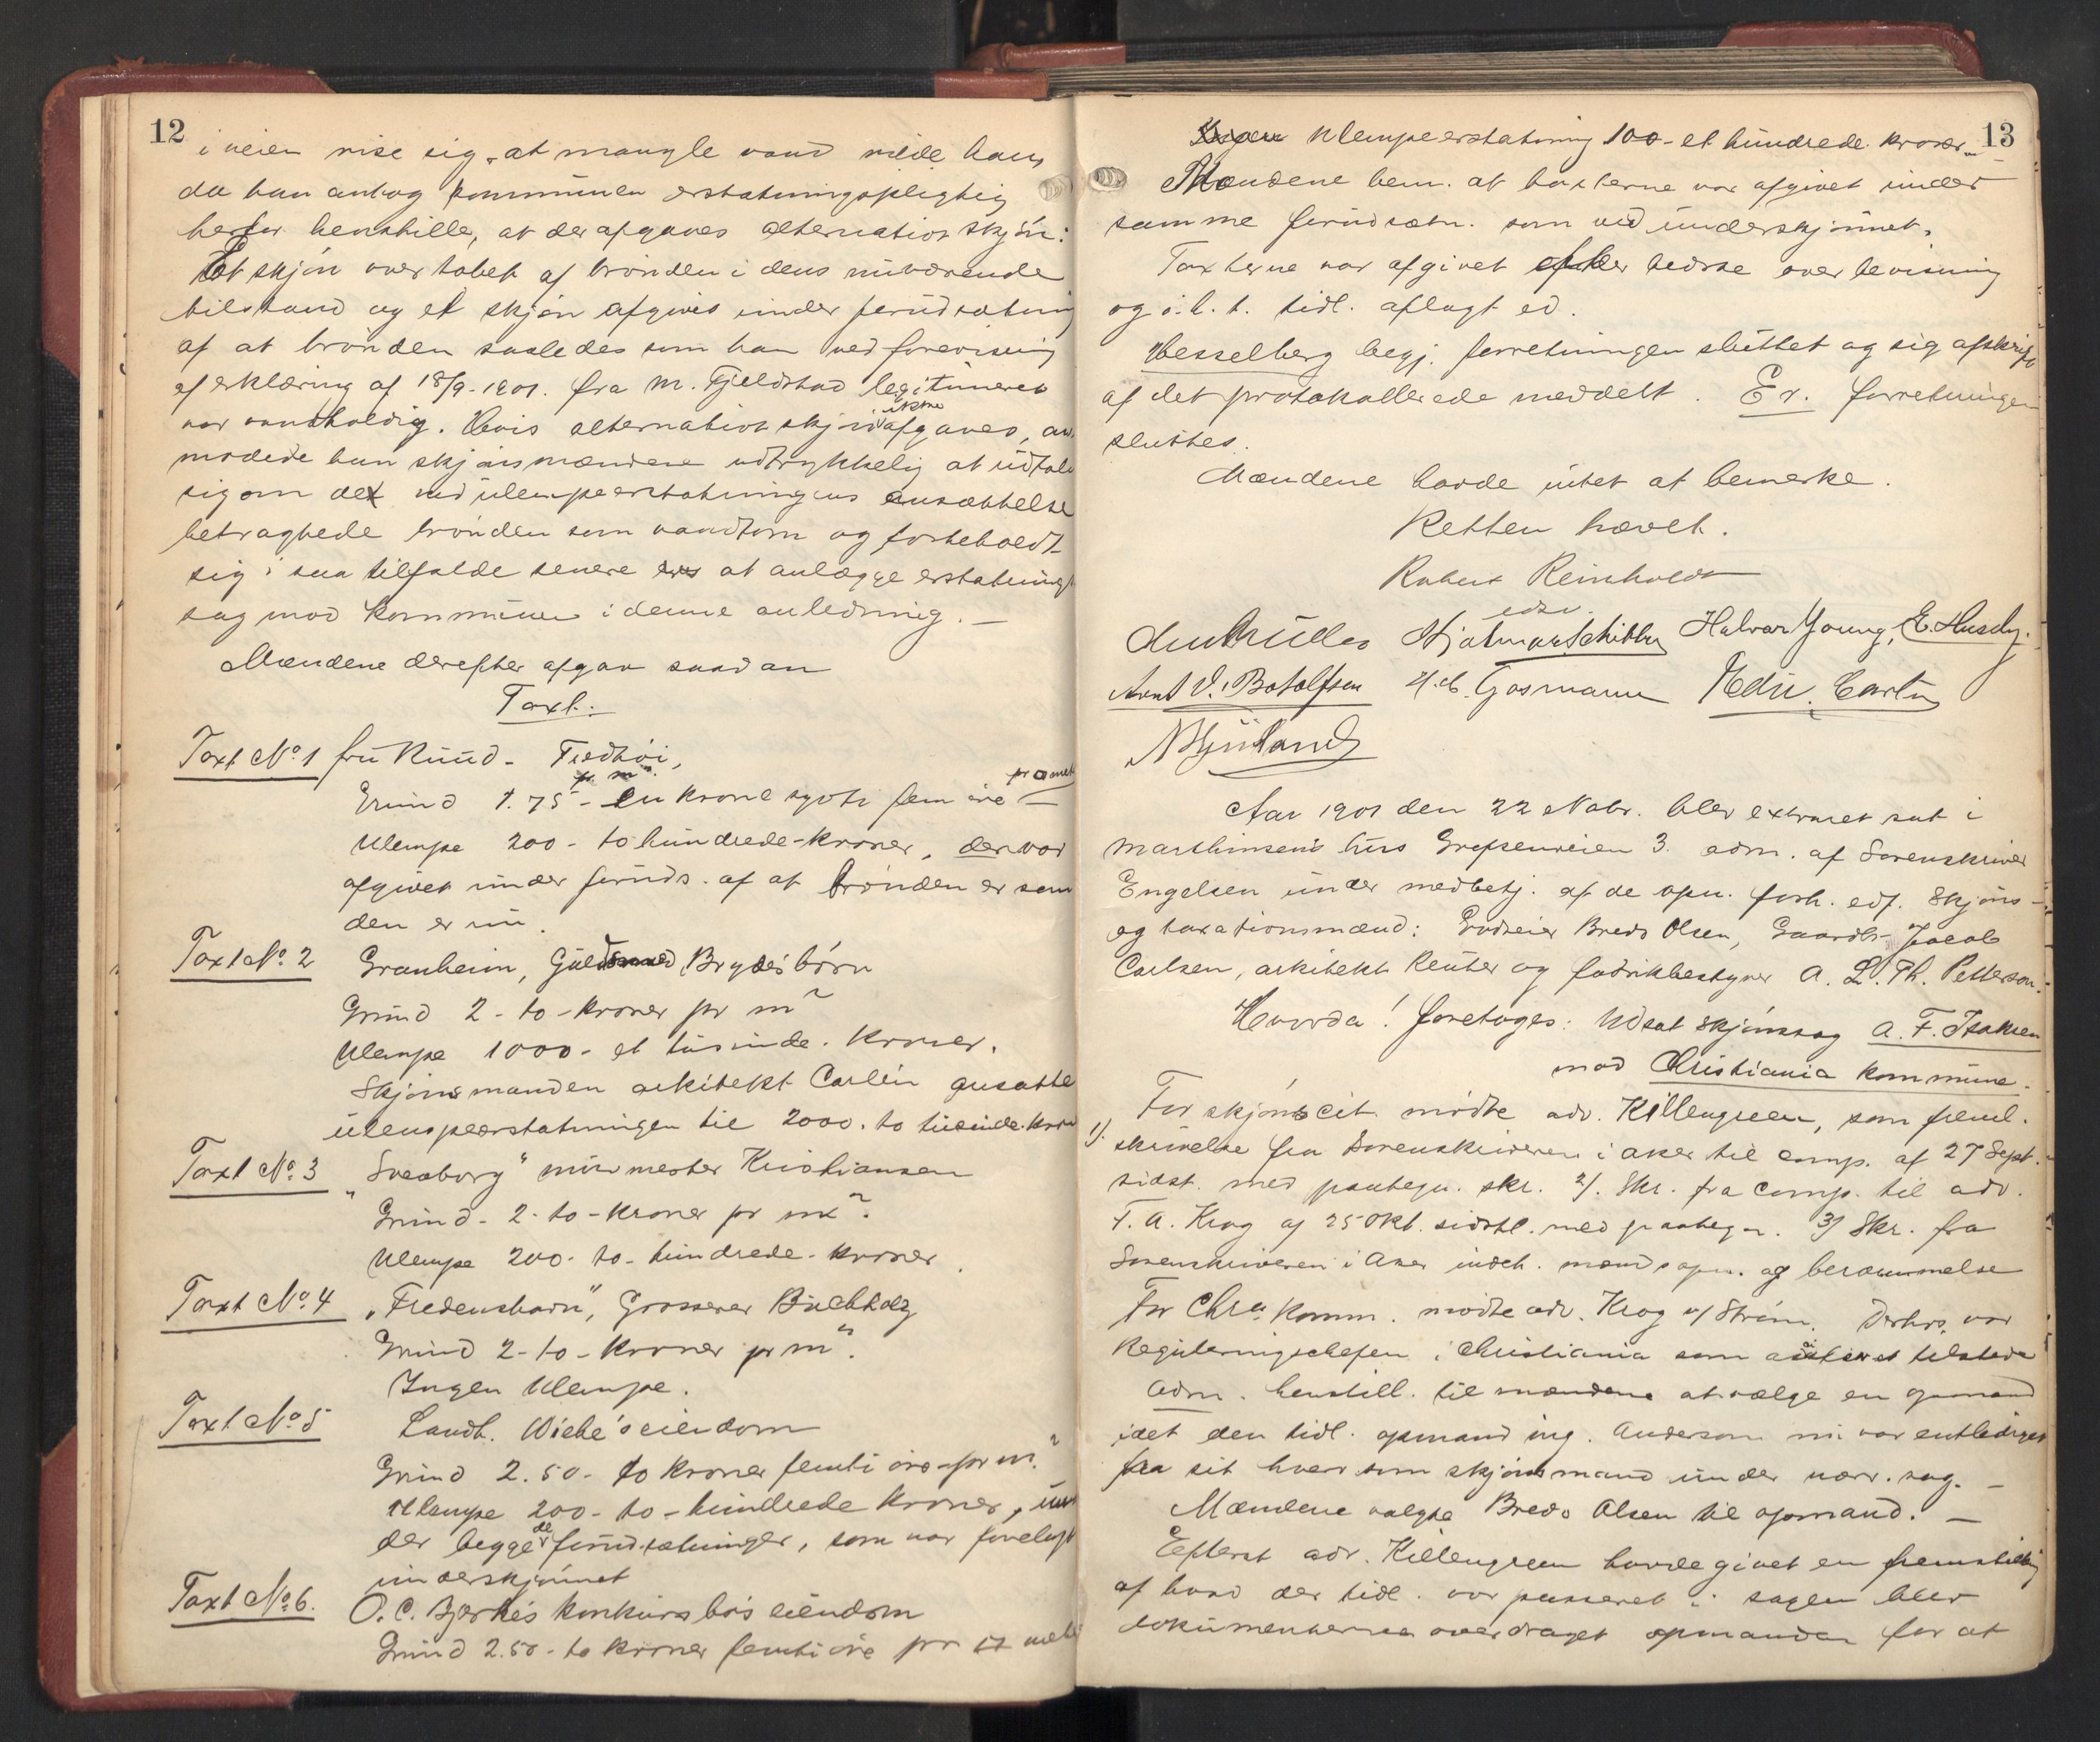 12
i veien vise sig at mangle vand vilde han,
da han antog kommunen erstatningspligtig
herfor henstille, at der afgaves alternativt skjøn:
Et skjøn over tabet af brønden i dens nuværende
tilstand og et skjøn afgives under forudsætning
af at brønden saaledes som han ved forevisning
af erklæring af 18/9-1901. fra M. Fjeldstad legitimeret
var vandholdig. Hvis alternativt skjøn ikke afgaves, an-
modede han skjønsmændene udtrykkelig at udtale
sig om det ved ulempeerstatningens ansættelse
betragtede brønden som vandtom og forbeholdt
sig i saa tilfælde senere at anlægge erstatnings
sag mod kommunen i denne anledning. —
Mændene derefter afgav saadan
Taxt:
Taxt No. 1 fru Ruud - Fredhøi,
pr. m². pr □ met
Grund 1.75 - en krone sytti fem øre —
Ulempe 200 - to hundrede - kroner, der var
afgivet under foruds. af at brønden er som
den er nu.
Taxt No. 2 Granheim, Guldsmed Brydes børn
Grund 2 - to - kroner pr m²
Ulempe 1000 - et tusinde. Kroner.
Skjønsmanden arkitekt Carlén ansatte
ulempeerstatningen til 2000. to tusinde. kron
Taxt No. 3 „Sveaborg" murmester Kristiansen
Grund - 2 - to - kroner pr m².
Ulempe 200 - to - hundrede - kroner.
Taxt No. 4 „Fredensharn", Grosserer Buchholz
Grund 2 - to - Kroner pr m².
Ingen Ulempe.
Taxt No. 5 Landh. Wiche's eiendom
Grund 2.50 - to kroner femti øre - pr m².
Ulempe 200 - to - hundrede kroner, un
der begge de forudsætninger, som var forelagt
underskjønnet
Taxt No. 6. O. C. Bjerke's konkursbo's eiendom
Grund 2.50 - to kroner femti øre pr □ met
13
Ulempeerstatning 100 - et hundrede kroner. —
Mændene bem. at taxterne var afgivet under
samme forudsætn. som ved underskjønnet.
Taxterne var afgivet efter bedste overbevisning
og i. h. t. tidl. aflagt ed.
Hesselberg begj. forretningen sluttet og sig afskrift
af det protokollerede meddelt. Ex. forretningen
sluttes.
Mændene havde intet at bemerke.
Retten hævet.
Robert Reinholdt
edsv.
Hjalmar Schibby Halvar Young, E. Huseby.
Arnt V. Botolfsen H. Gosmann Edv. Carlén
Aar 1901 den 22 Nobr. blev extraret sat i
Marthinsens hus Grefsenveien 3. adm. af Sorenskriver
Engelsen under medbetj. af de opn. forh. edf. skjøns-
og taxationsmænd: Godseier Bredo Olsen, Gaardbr. Jacob
Carlsen, arkitekt Reuter og fabrikbestyrer A. L. Th. Petterson.
Hvorda! foretoges: Udsat skjønssag A. F. Isaksen
mod Christiania kommune.
For skjønscit. mødte adv. Killengreen, som freml.
1). skrivelse fra Sorenskriveren i Aker til comp. af 27 Sept.
sidstl. med paategn. skr. 2). Skr. fra comp. til adv.
F. A. Krog af 25 Okt. sidstl. med paategn. 3) Skr. fra
Sorenskriveren i Aker indeh. mandsopn. og berammelse
For Chra. komm. mødte adv. Krog v/ Strøm. Derhos var
Reguleringschefen i Christiania som tilstede
Adm. henstill. til mændene at vælge en opmand
idet den tidl. opmand ing. Anderson nu var entlediget
fra sit hverv som skjønsmand under nærv. sag. —
Mændene valgte Bredo Olsen til opmand. —
Efterat adv. Killengreen havde givet en fremstilling
af hvad der tidl. var passeret i sagen blev
dokumenterne overdraget opmanden for at